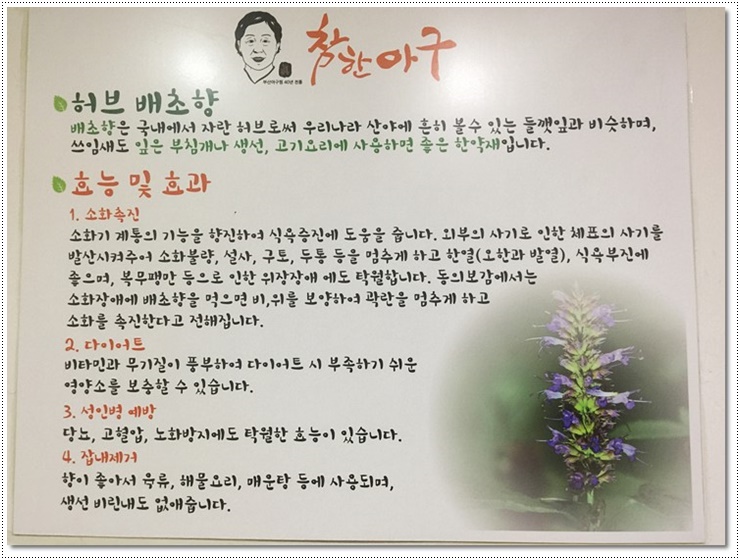 참한아구
부산아구찜 40년 전통
허브 배초향
배초향은 국내에서 자란 허브로써 우리나라 산야에 흔히 볼수 있는 들깻잎과 비슷하며,
쓰임새도 잎은 부침개나 생선, 고기요리에 사용하면 좋은 한약재입니다.
효능 및 효과
1. 소화촉진
소화기 계통의 기능을 향진하여 식욕증진에 도움을 줍니다. 외부의 사기로 인한 체표의 사기를
발산시켜주어 소화불량, 설사, 구토, 두통 등을 멈추게 하고 한열(오한과 발열), 식욕부진에
좋으며, 복무팽만 등으로 인한 위장장애 에도 탁월합니다. 동의보감에서는
소화장애에 배초향을 먹으면 비,위를 보양하여 곽란을 멈추게 하고
소화를 촉진한다고 전해집니다.
2. 다이어트
비타민과 무기질이 풍부하여 다이어트 시 부족하기 쉬운
영양소를 보충할 수 있습니다.
3. 성인병 예방
당뇨, 고혈압, 노화방지에도 탁월한 효능이 있습니다.
4. 잡내제거
향이 좋아서 육류, 해물요리, 매운탕 등에 사용되며,
생선 비린내도 없애줍니다.